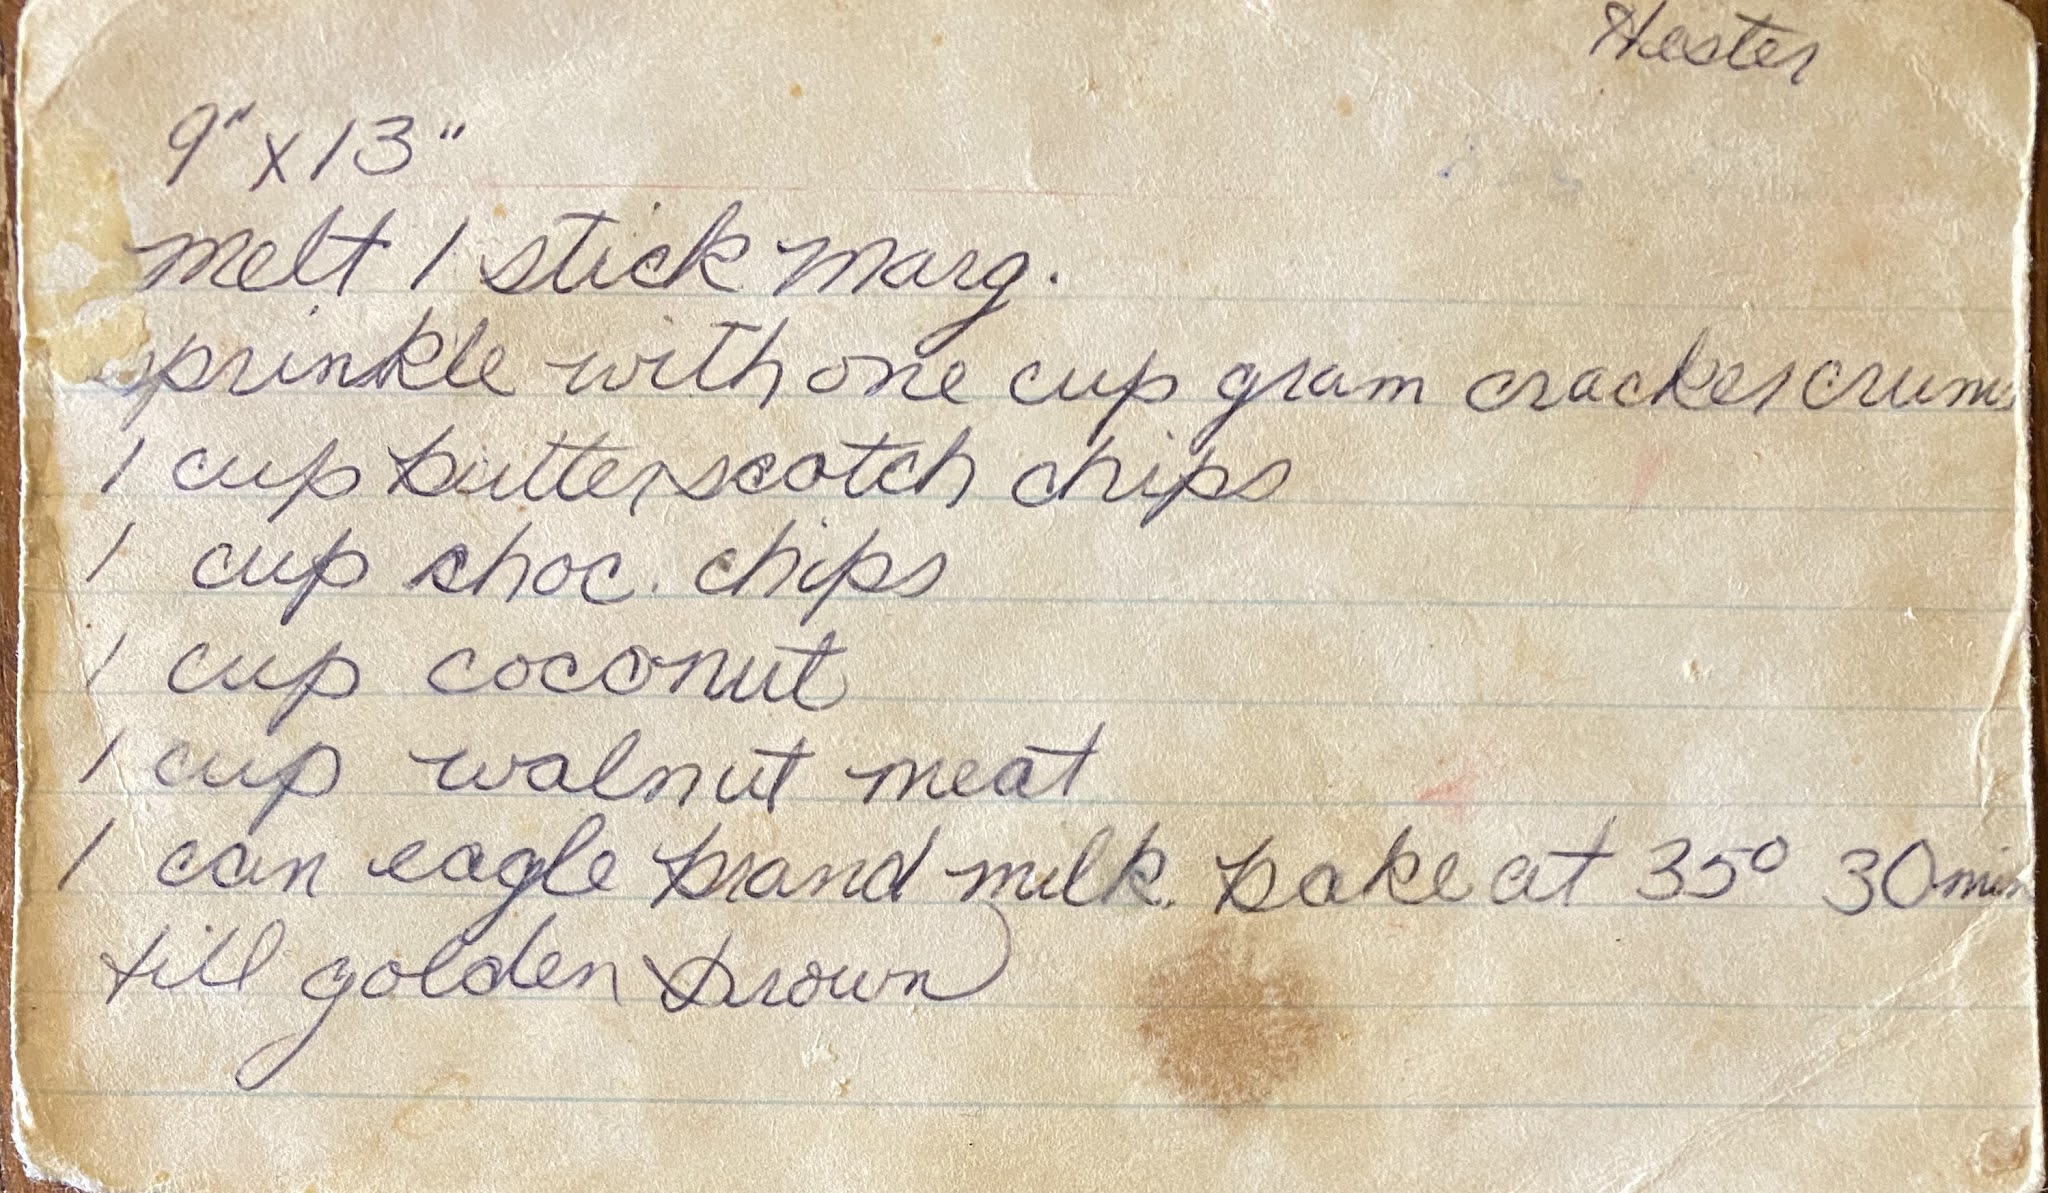 Hester
9" x 13"
melt 1 stick marg.
sprinkle with one cup gram cracker crums
1 cup butterscotch chips
1 cup choc. chips
1 cup coconut
1 cup walnut meat
1 can eagle brand milk. bake at 35° 30 min
till golden brown